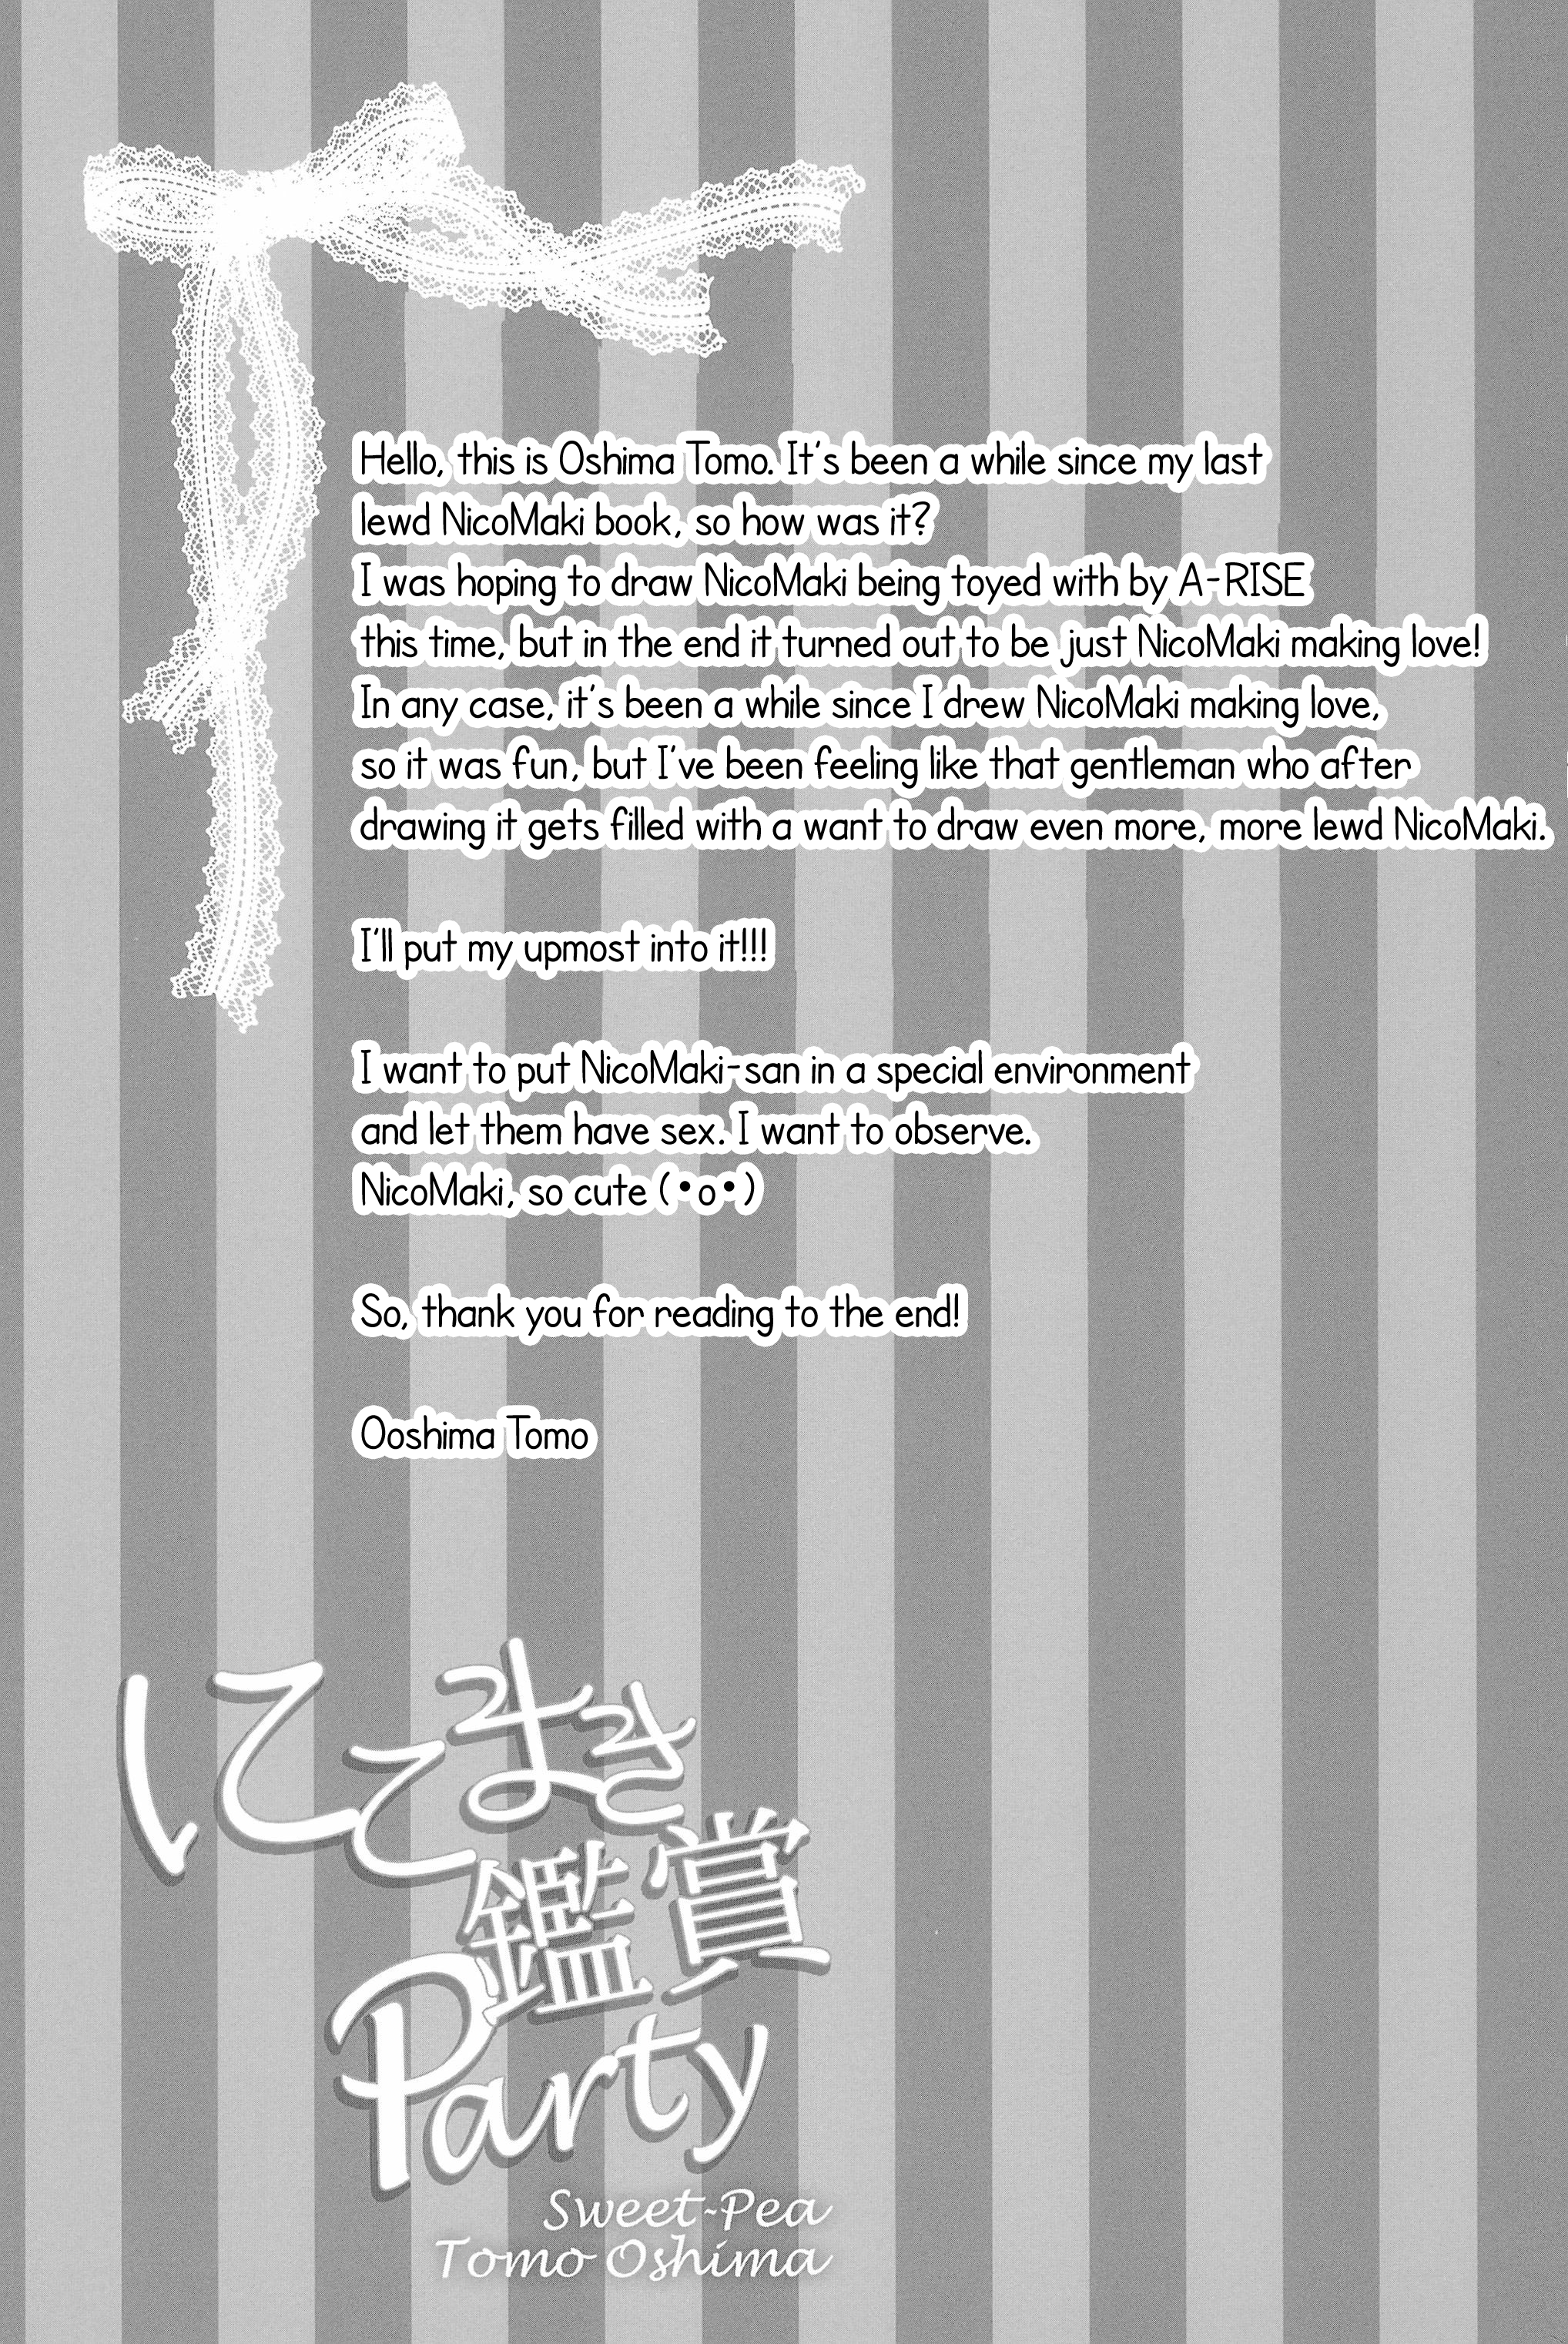 Hello, this is Oshima Tomo. It's been a while since my last
lewd NicoMaki book, so how was it?
I was hoping to draw NicoMaki being toyed with by A-RISE
this time, but in the end it turned out to be just NicoMaki making love!
In any case, it's been a while since I drew NicoMaki making love,
so it was fun, but I've been feeling like that gentleman who after
drawing it gets filled with a want to draw even more, more lewd NicoMaki.
I'll put my upmost into it!!!
I want to put NicoMaki-san in a special environment
and let them have sex. I want to observe.
NicoMaki, so cute (•o•)
So, thank you for reading to the end!
Ooshima Tomo
にこまき
鑑賞
Party
Sweet-Pea
Tomo Oshima